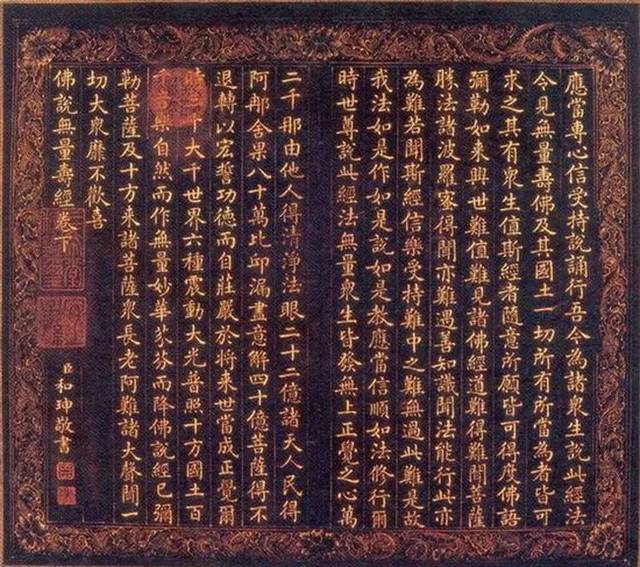 應當專心信受持說誦行吾今為諸衆生說此經法
今見無量壽佛及其國土一切所有所當為者皆可
求之其有衆生值斯經者隨意所願皆可得度佛語
彌勒如来興世難值難見諸佛經道難得難聞菩薩
勝法諸波羅蜜得聞亦難遇善知識聞法能行此亦
為難若聞斯經信樂受持難中之難無過此難是故
我法如是作如是說如是教應當信順如法修行爾
時世尊說此經法無量衆生皆發無上正覺之心萬
二千那由他人得清淨法眼二十二億諸天人民得
阿那舍果八十萬比邱漏盡意解四十億菩薩得不
退轉以宏誓功德而自莊嚴於將来世當成正覺爾
時千大千世界六種震動大光普照十方國土百
樂自然而作無量妙華芬而降佛說經已彌
勒菩薩及十方来諸菩薩衆長老阿難諸大聲聞一
切大衆靡不歡喜
佛說無量壽經卷下
臣和珅敬書